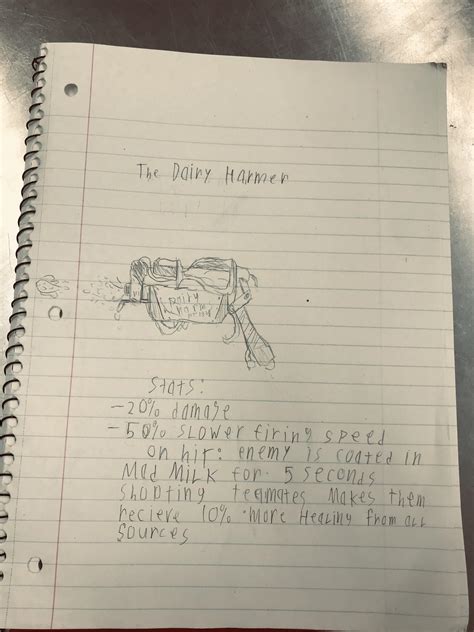 The Dairy Harmer
Dairy
Stats:
-20% damage
-50% slower firing speed
on hit: enemy is coated in
Mad Milk for 5 seconds
shooting teamates makes them
recieve 10% more Healing from all
sources